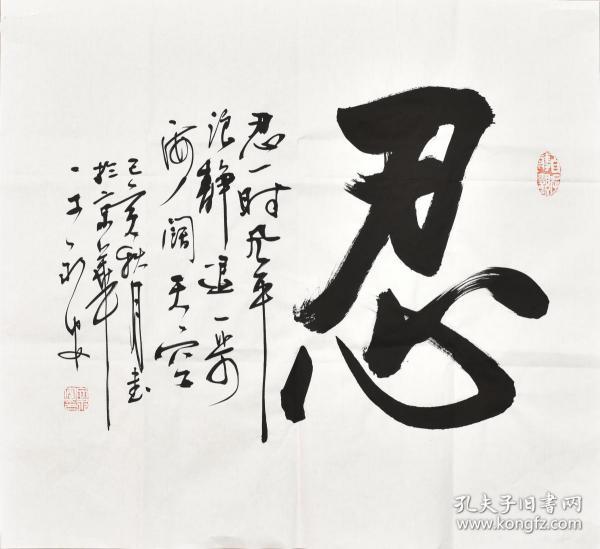 忍
忍一时风平
浪静退一步
海阔天空
己亥秋月书
於京华
孔夫子旧书网
www.kongfz.com